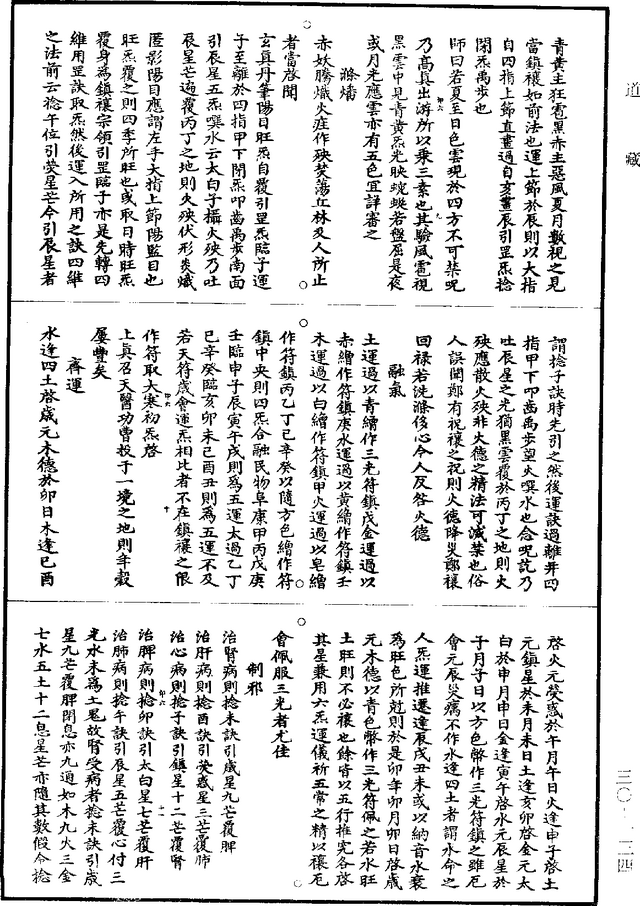 道藏
青黄主狂雹黑赤主惡風夏月數視之見
當鎮禳如前法也運上節於辰則以大指
自四指上節直畫過自亥畫辰引罡炁捻
閉炁禹步也
師曰若夏至日色雲現於四方不可禁呪
乃高真出游所以乘三素也其驗風雹視
黑雲中見青黄炁光映蜿蜒若盤屈是夜
或月光應雲亦有五色宜詳審之
滌燔
赤妖騰熾火疰作殃焚蕩丘林及人所止
者當啓聞
玄真丹篆陽日旺炁自覆引罡炁臨子運
子至離於四指甲下閉炁叩齒禹步南面
引辰星五炁噀水云太白子攝火殃乃吐
辰星芒遍覆丙丁之地則火殃伏形炎熾
匿影陽目應謂左手大指上節陽監目也
旺炁覆之則四季所旺也或取日時旺炁
覆身爲鎮禳宗領引罡臨子亦是先轉四
維用罡訣取炁然後運入所用之訣四維
之法前云捻午位引熒星芒今引辰星者
謂捻子訣時先引之然後運訣過離井四
指甲下叩齒禹步望火噀水也念呪訖乃
吐辰星之光猶黑雲覆於丙丁之地則火
殃應散火殃非火德之精法可減禁也俗
人誤聞鄭有祝禳之祝則火德降災鄭禳
回禄若洗滌侈心令人反咎火德
融氣
土運過以青繒作三光符鎮戊金運過以
赤繒作符鎮庚水運過以黄繒作符鎮壬
木運過以白繒作符鎮甲火運過以皂繒
作符鎮丙乙丁己辛癸以隨方色繒作符
鎮中央則四炁合融民物阜康甲丙戊庚
壬臨申子辰寅午戌則爲五運太過乙丁
己辛癸臨亥卯未己酉丑則爲五運不及
若天符歲會運炁相比者不在鎮禳之限
作符取大寒初炁啓
上真召天醫功曹投于一境之地則年穀
屢豐矣
齊運
水逢四土啓歲元木德於卯日木逢巳酉
啓火元熒惑於午月午日火逢申子啓土
元鎮星於未月未日土逢亥卯啓金元太
白於申月申日金逢寅午啓水元辰星於
子月子日以方色幣作三光符鎮之雖厄
會元辰災癘不作水逢四土者謂水命之
人炁運推遷逢辰戌丑未或以納音水衰
爲旺色所尅則於是卯年卯月卯日啓歲
元木德以青色幣作三光符佩之若水旺
土旺則不必禳也餘皆以五行推究各啓
其星兼用六炁運儀祈五常之精以禳厄
會佩服三光者尤佳
制邪
治腎病則捻未訣引歲星九芒覆脾
治肝病則捻酉訣引熒惑星三芒覆肺
治心病則捻子訣引鎮星十二芒覆腎
治脾病則捻卯訣引太白星七芒覆肝
治肺病則捻午訣引辰星五芒覆心付三
光水未爲土鬼故腎受病者捻未訣引歲
星九芒覆脾閉息亦九通如木九火三金
七水五土十二息星芒亦隨其數假令捻
三〇
三四